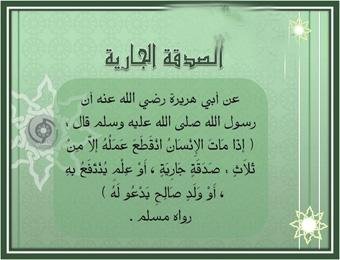 الصدقة الجارية
عن أبي هريرة رضي الله عنه أن
رسول الله صلى الله عليه وسلم قال ،
( إِذَا مَاتَ الإِنْسَانُ انْقَطَعَ عَمَلُهُ إِلاَ مِنْ
ثَلاَثٍ ، صَدَقَةٍ جَارِيَةٍ ، أَوْ عِلْمٍ يُنْتَفَعُ بِهِ
، أَوْ وَلَدٍ صَالِحٍ يَدْعُو لَهُ )
رواه مسلم .